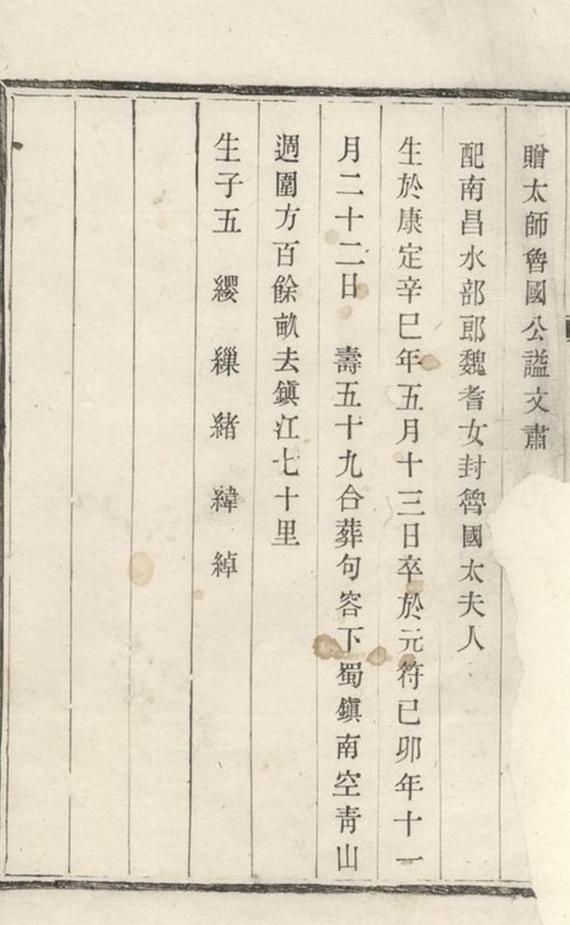 贈太師魯國公謚文肅
配南昌水部郎魏耆女封魯國太夫人
生於康定辛巳年五月十三日卒於元符己卯年十一
月二十二日 壽五十九合葬句容下蜀鎮南空青山
週圍方百餘畝去鎮江七十里
生子五 纓 繅 緒 緯 綽